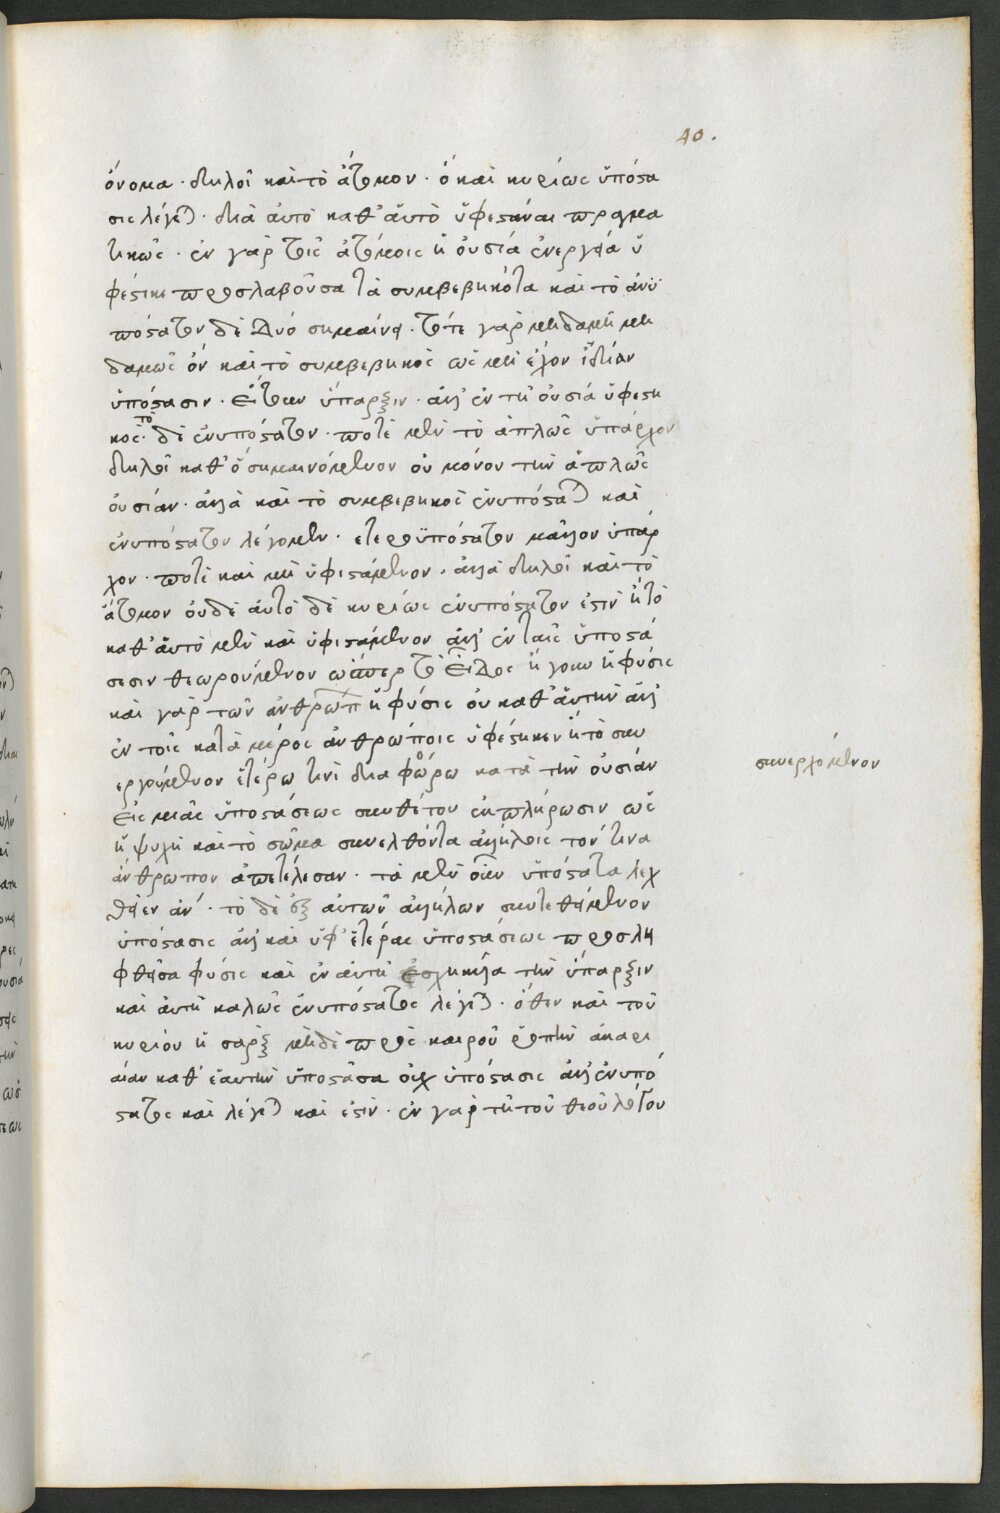 40.
ὄνομα· δηλοῖ καὶ τὸ ἄτομον· ὁ καὶ κυρίως ὑπόστα
σις λέγεται· διὰ αὐτὸ καθ' ἁυτὸ ὑφεστάναι πραγμα
τικῶς· ἐν γὰρ τοῖς ἀτόμοις ἡ οὐσία ἐνεργεία ὑ
φέστηκε προσλαβοῦσα τὰ συμβεβηκότα καὶ τὸ ἀνϋ
πόστατον δὲ δύο σημαίνει· τότε γὰρ μηδαμῆ μη
δαμῶς ὂν καὶ τὸ συμβεβηκὸς ὡς μὴ ἔχον ἰδίαν
ὑπόστασιν· εἴτουν ὕπαρξιν· ἀλλ' ἐν τῇ οὐσία ὑφεστη
κός· τὸ δὲ ἐνυπόστατον· ποτὲ μὲν τὸ ἁπλῶς ὑπάρχον
δηλοῖ καθ' ὃ σημαινόμενον οὐ μόνον τὴν ἁπλῶς
οὐσίαν· ἀλλὰ καὶ τὸ συμβεβηκὸς ἐνυπόστατον καὶ
ἐνυπόστατον λέγομεν· ἑτεροϋπόστατον μᾶλλον ὑπάρ
χον· ποτὲ καὶ μὴ ὑφιστάμενον· ἀλλὰ δηλοῖ καὶ τὸ
ἄτομον οὐδὲ αὐτὸ δὲ κυρίως ἐνυπόστατον ἐστὶν ἢ τὸ
καθ' ἁυτὸ μὲν καὶ ὑφιστάμενον ἀλλ' ἐν ταῖς ὑποστά
σεσιν θεωρούμενον ὥσπερ τὸ εἶδος ἤγουν ἡ φύσις
καὶ γὰρ τῶν ἀνθρώπων ἡ φύσις οὐ καθ' ἁυτὴν ἀλλ'
ἐν τοῖς κατὰ μέρος ἀνθρώποις ὑφέστηκεν ἢ τὸ συν
εργόμενον ἑτέρω τινὶ διαφόρω κατὰ τὴν οὐσίαν
συνερχόμενον
εἰς μιᾶς ὑποστάσεως συνθέτου ἐκπλήρωσιν ὡς
ἡ ψυχὴ καὶ τὸ σῶμα συνελθόντα ἀλλήλοις τόν τινα
ἄνθρωπον ἀπετέλεσαν· τὰ μὲν οὖν ὑπόστατα λεχ
θεῖεν ἄν· τὸ δὲ ἐξ αὐτῶν ἀλλήλων συντεθειμένον
ὑπόστασις ἀλλὰ καὶ ὑφ' ἑτέρας ὑποστάσεως προσλη
φθεῖσα φύσις καὶ ἐν αὐτῇ ἐσχηκυῖα τὴν ὕπαρξιν
καὶ αὐτὴ καλῶς ἐνυπόστατος λέγεται· ὅθεν καὶ τοῦ
κυρίου ἡ σὰρξ μηδὲ πρὸς καιροῦ ῥοπὴν ἀκαρι
αίαν καθ' ἑαυτὴν ὑποστᾶσα οὐχ ὑπόστασις ἀλλ' ἐνυπό
στατος καὶ λέγεται καὶ ἐστὶν· ἐν γὰρ τῇ τοῦ θεοῦ λόγου